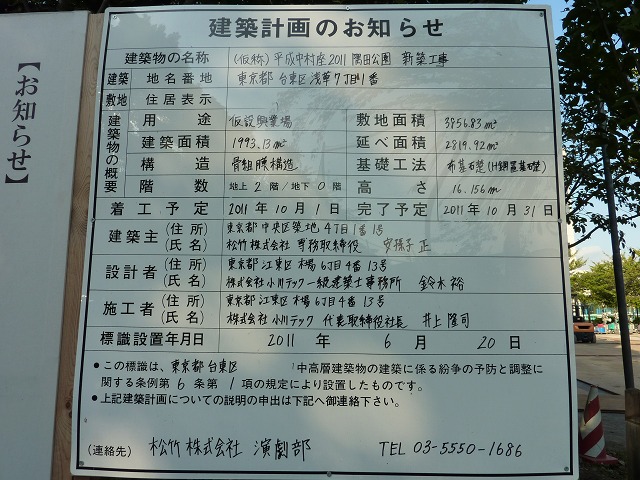 【お知らせ】
建築計画のお知らせ
建築物の名称 (仮称) 平成中村座2011 隅田公園 新築工事
建築敷地 地名番地 東京都 台東区 浅草7丁目1番
住居表示
建築物の概要 用途 仮設興業場 敷地面積 3956.83㎡
建築面積 1993.13㎡ 延べ面積 2819.92㎡
構造 骨組膜構造 基礎工法 布基礎(H鋼置基礎)
階数 地上 2 階/地下 0 階 高さ 16.156m
着工予定 2011 年 10 月 1 日 完了予定 2011 年 10 月 31 日
建築主 (住所) 東京都 中央区 築地 4丁目1番1号
(氏名) 松竹株式会社 専務取締役 安孫子 正
設計者 (住所) 東京都 江東区 木場 6丁目4番13号
(氏名) 株式会社 小川テック 一級建築士事務所 鈴木 裕
施工者 (住所) 東京都 江東区 木場 6丁目4番13号
(氏名) 株式会社 小川テック 代表取締役社長 井上 隆司
標識設置年月日 2011 年 6 月 20 日
●この標識は、東京都 台東区 中高層建築物の建築に係る紛争の予防と調整に
関する条例第 6 条第 1 項の規定により設置したものです。
●上記建築計画についての説明の申出は下記へ御連絡下さい。
(連絡先) 松竹 株式会社 演劇部 TEL 03-5550-1686